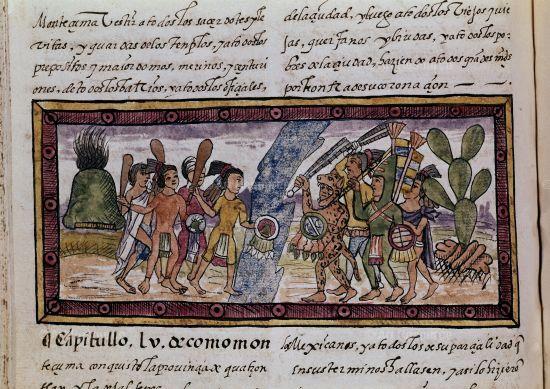 Monteçuma Vestir a todos los sacerdotes y le
vitas, y guardas de los templos, y a todos los
prepositos y maiordomos, merinos, y centuri
ones, de todos los barrios, y a todos los ofiçiales,
de la çiudad, y luego a todos los Viejos y vie
jas, guerfanos y biudas, y a todos los po
bres de la çiudad, hazien do a todos grandes mds
por honrra de su corona çion
¶ Capitullo. lv. de como mon
teçuma conquisto la provinçia de quatzon
tlan y
los Mexicanos, y a todos los de su parçialidad q
en sus terminos hallasen, y asi lo hiçierõ